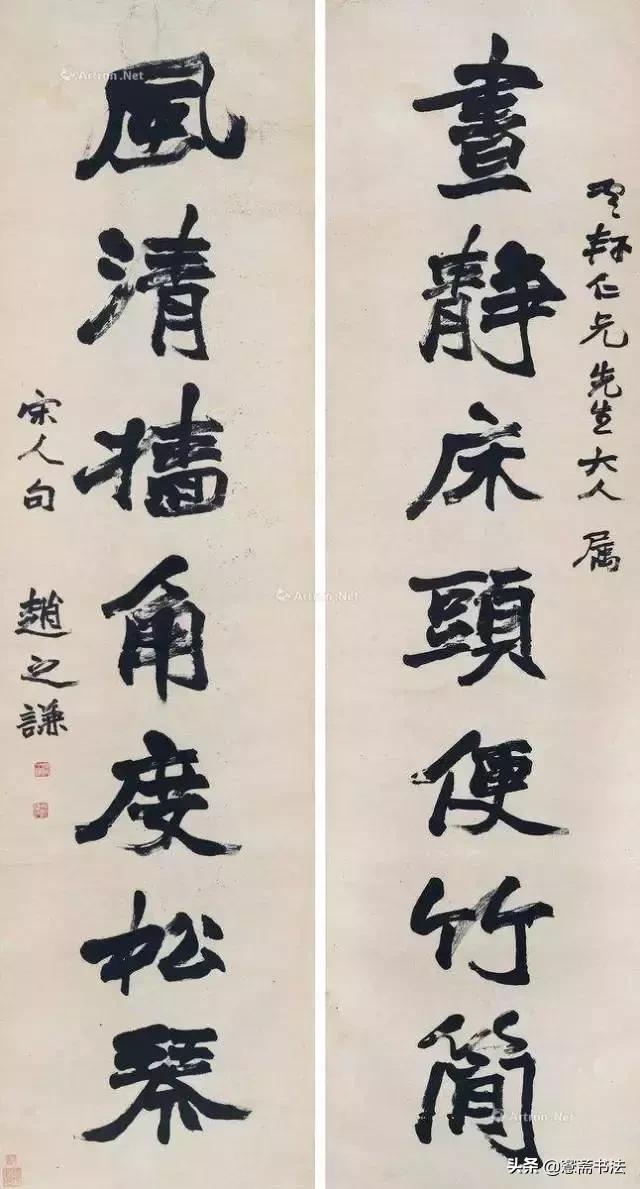 軒仁兄先生大人 属
晝靜床頭便竹簡
風清墻角度松琴
宋人句 趙之謙
Artron.Net
Artron.Net
Artron.Net
头条 @愙斋书法